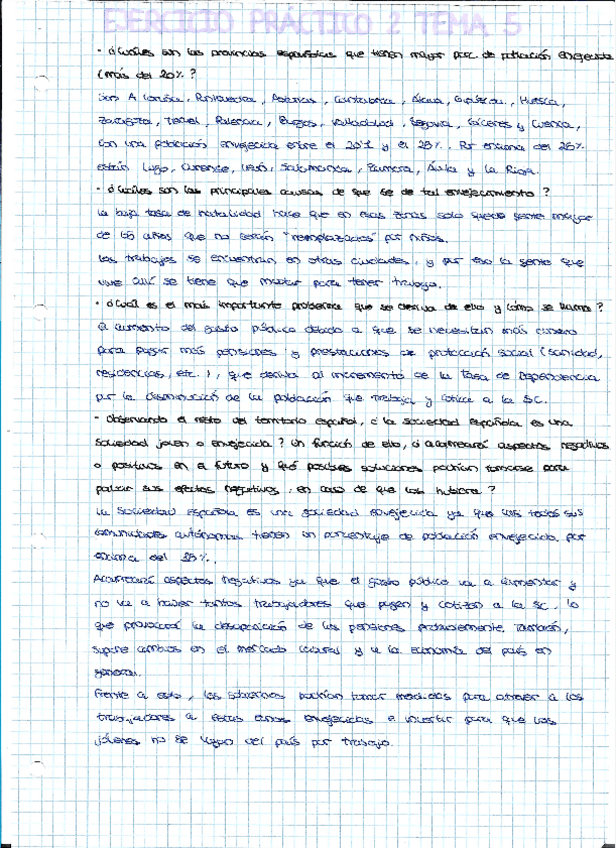 EJERCICIO PRÁCTICO 2 TEMA 5
· ¿Cuáles son las provincias españolas que tienen mayor porc. de población envejecida
(más del 20%?
Son A Coruña, Pontevedra, Asturias, Cantabria, Álava, Gipúzcoa, Huesca,
Zaragoza, Teruel, Palencia, Burgos, Valladolid, Segovia, Cáceres y Cuenca,
con una población envejecida entre el 20% y el 25%. Por encima del 25%
están Lugo, Ourense, León, Salamanca, Zamora, Ávila y La Rioja.
· ¿Cuáles son las principales causas de que se de tal envejecimiento?
La baja tasa de natalidad hace que en esas zonas solo quede gente mayor
de 65 años que no serán "reemplazados" por niños.
Los trabajos se encuentran en otras ciudades, y por eso la gente que
vive allí se tiene que mudar para tener trabajo.
· ¿Cuál es el más importante problema que se deriva de ello y cómo se llama?
El aumento del gasto público debido a que se necesitan más dinero
para pagar más pensiones y prestaciones de protección social (sanidad,
residencias, etc.), que deriva al incremento de la Tasa de Dependencia
por la disminución de la población que trabaja y cotiza a la SC.
· Observando el resto del territorio español, ¿la sociedad española es una
sociedad joven o envejecida? En función de ello, ¿acarreará aspectos negativos
o positivos en el futuro y qué posibles soluciones podrían tomarse para
paliar sus efectos negativos, en caso de que los hubiera?
La sociedad española es una sociedad envejecida ya que casi todas sus
comunidades autónomas tienen un porcentaje de población envejecida por
encima del %.
Acarreará aspectos negativos ya que el gasto público va a aumentar y
no va a haber tantos trabajadores que paguen y coticen a la SC, lo
que provocará la desaparición de las pensiones próximamente. También,
supone cambios en el mercado laboral y en la economía del país en
general.
Frente a esto, los gobiernos podrían tomar medidas para atraer a los
trabajadores a estas zonas envejecidas e invertir para que los
jóvenes no se vayan del país por trabajo.